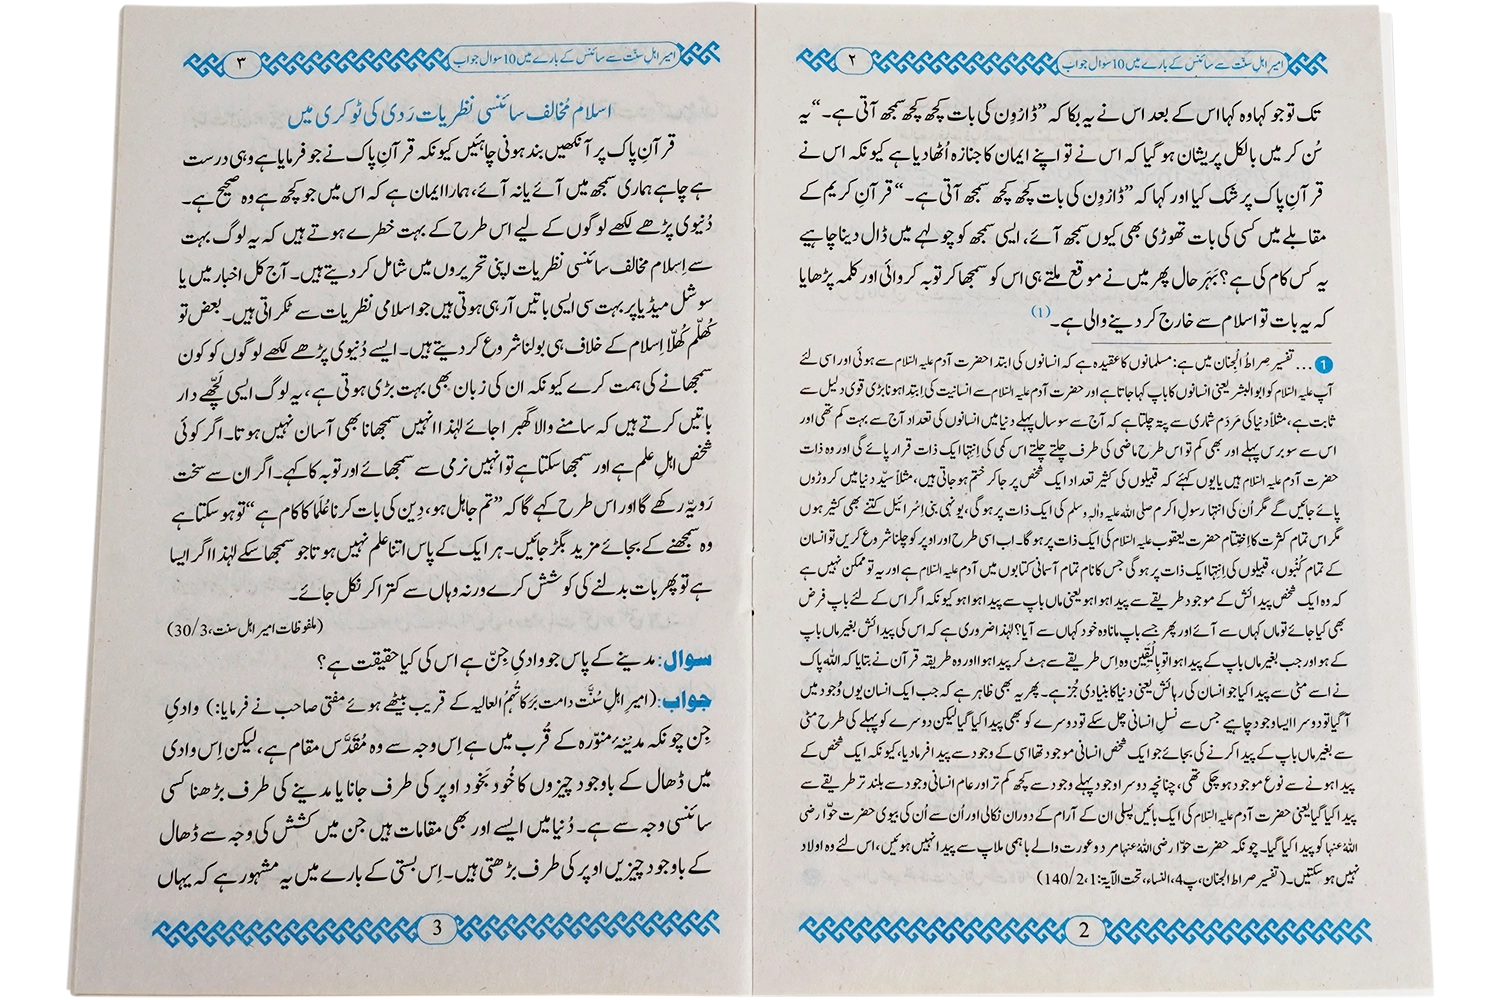 امیرِ اہلِ سنّت سے سائنس کے بارے میں 10 سوال جواب
۲
تک تو جو کہا وہ کہا اس کے بعد اس نے یہ بکا کہ ”ڈارْوِن کی بات کچھ کچھ سمجھ آتی ہے۔“ یہ
سُن کر میں بالکل پریشان ہو گیا کہ اس نے تو اپنے ایمان کا جنازہ اُٹھا دیا ہے کیونکہ اس نے
قرآنِ پاک پر شک کیا اور کہا کہ ”ڈارْوِن کی بات کچھ کچھ سمجھ آتی ہے۔“ قرآنِ کریم کے
مقابلے میں کسی کی بات تھوڑی بھی کیوں سمجھ آئے، ایسی سمجھ کو چولہے میں ڈال دینا چاہیے
یہ کس کام کی ہے؟ بَہَرحال پھر میں نے موقع ملتے ہی اس کو سمجھا کر توبہ کروائی اور کلمہ پڑھایا
کہ یہ بات تو اسلام سے خارج کر دینے والی ہے۔ (1)
1 ... تفسیر صِراطُ الْجِنان میں ہے: مسلمانوں کا عقیدہ ہے کہ انسانوں کی ابتدا حضرت آدم علیہ السّلام سے ہوئی اور اسی لئے
آپ علیہ السّلام کو ابو البشر یعنی انسانوں کا باپ کہا جاتا ہے اور حضرت آدم علیہ السّلام سے انسانیت کی اِبتدا ہونا بڑی قوی دلیل سے
ثابت ہے، مثلاً دنیا کی مَردُم شماری سے پتہ چلتا ہے کہ آج سے سو سال پہلے دنیا میں انسانوں کی تعداد آج سے بہت کم تھی اور
اس سے سو برس پہلے اور بھی کم تو اس طرح ماضی کی طرف چلتے چلتے اس کمی کی اِنتِہا ایک ذات قرار پائے گی اور وہ ذات
حضرت آدم علیہ السّلام ہیں یا یوں کہئے کہ قبیلوں کی کثیر تعداد ایک شخص پر جاکر ختم ہوجاتی ہیں، مثلاً سیّد دنیا میں کروڑوں
پائے جائیں گے مگر اُن کی انتہا رسولِ اکرم صلی اللہ علیہ واٰلہٖ وسلم کی ایک ذات پر ہوگی، یونہی بنی اسرائیل کتنے بھی کثیر ہوں
مگر اس تمام کثرت کا اِختِتام حضرت یعقوب علیہ السّلام کی ایک ذات پر ہوگا۔ اب اسی طرح اور اوپر کو چلنا شروع کریں تو انسان
کے تمام کُنبوں، قبیلوں کی اِنتِہا ایک ذات پر ہوگی جس کا نام تمام آسمانی کتابوں میں آدم علیہ السّلام ہے اور یہ تو ممکن نہیں ہے
کہ وہ ایک شخص پیدائش کے موجود طریقے سے پیدا ہوا ہو یعنی ماں باپ سے پیدا ہوا ہو کیونکہ اگر اس کے لئے باپ فرض
بھی کیا جائے تو ماں کہاں سے آئے اور پھر جسے باپ مانا وہ خود کہاں سے آیا؟ لہٰذا ضروری ہے کہ اس کی پیدائش بغیر ماں باپ
کے ہو اور جب بغیر ماں باپ کے پیدا ہوا تو بِالْیَقین وہ اِس طریقے سے ہٹ کر پیدا ہوا اور وہ طریقہ قرآن نے بتایا کہ اللہ پاک
نے اسے مٹی سے پیدا کیا جو انسان کی رہائش یعنی دنیا کا بنیادی جُز ہے۔ پھر یہ بھی ظاہر ہے کہ جب ایک انسان یوں وُجود میں
آگیا تو دوسرا ایسا وجود چاہیے جس سے نسلِ انسانی چل سکے تو دوسرے کو بھی پیدا کیا گیا لیکن دوسرے کو پہلے کی طرح مٹی
سے بغیر ماں باپ کے پیدا کرنے کی بجائے جو ایک شخص انسانی موجود تھا اسی کے وجود سے پیدا فرما دیا، کیونکہ ایک شخص کے
پیدا ہونے سے نوع موجود ہوچکی تھی، چنانچہ دوسرا وجود پہلے وجود سے کچھ کم تر اور عام انسانی وجود سے بلند تر طریقے سے
پیدا کیا گیا یعنی حضرت آدم علیہ السّلام کی ایک بائیں پسلی ان کے آرام کے دوران نکالی اور اُن سے اُن کی بیوی حضرت حوّا رضی
اللہُ عنہا کو پیدا کیا گیا۔ چونکہ حضرت حوّا رضی اللہُ عنہا مرد و عورت والے باہمی ملاپ سے پیدا نہیں ہوئیں، اس لئے وہ اولاد
نہیں ہو سکتیں۔ (تفسیر صراط الجنان، پ4، النساء، تحت الآیۃ: 1، 2/140)
2
امیرِ اہلِ سنّت سے سائنس کے بارے میں 10 سوال جواب
۳
اسلام مُخالف سائنسی نظریات رَدی کی ٹوکری میں
قرآنِ پاک پر آنکھیں بند ہونی چاہئیں کیونکہ قرآنِ پاک نے جو فرمایا ہے وہی درست
ہے چاہے ہماری سمجھ میں آئے یا نہ آئے، ہمارا ایمان ہے کہ اس میں جو کچھ ہے وہ صحیح ہے۔
دُنیوی پڑھے لکھے لوگوں کے لیے اس طرح کے بہت خطرے ہوتے ہیں کہ یہ لوگ بہت
سے اِسلام مخالف سائنسی نظریات اپنی تحریروں میں شامل کر دیتے ہیں۔ آج کل اخبار میں یا
سوشل میڈیا پر بہت سی ایسی باتیں آرہی ہوتی ہیں جو اسلامی نظریات سے ٹکراتی ہیں۔ بعض تو
کُھلَّم کُھلّا اِسلام کے خلاف ہی بولنا شروع کر دیتے ہیں۔ ایسے دُنیوی پڑھے لکھے لوگوں کو کون
سمجھانے کی ہمت کرے کیونکہ ان کی زبان بھی بہت بڑی ہوتی ہے، یہ لوگ ایسی لَچّھے دار
باتیں کرتے ہیں کہ سامنے والا گھبرا جائے لہٰذا انہیں سمجھانا بھی آسان نہیں ہوتا۔ اگر کوئی
شخص اہلِ علم ہے اور سمجھا سکتا ہے تو انہیں نرمی سے سمجھائے اور توبہ کا کہے۔ اگر ان سے سخت
رَوِیّہ رکھے گا اور اس طرح کہے گا کہ ”تم جاہل ہو، دِین کی بات کرنا عُلَما کا کام ہے“ تو ہوسکتا ہے
وہ سمجھنے کے بجائے مزید بگڑ جائیں۔ ہر ایک کے پاس اتنا علم نہیں ہوتا جو سمجھا سکے لہٰذا اگر ایسا
ہے تو پھر بات بدلنے کی کوشش کرے ورنہ وہاں سے کترا کر نکل جائے۔
(ملفوظات امیر اہل سنت، 3/30)
سوال: مدینے کے پاس جو وادیِ جِنّ ہے اس کی کیا حقیقت ہے؟
جواب: (امیرِ اہلِ سُنَّت دامت بَرَکاتُہُمُ العالیہ کے قریب بیٹھے ہوئے مفتی صاحب نے فرمایا:) وادیِ
جِن چونکہ مدینۂ منوّرہ کے قُرب میں ہے اِس وجہ سے وہ مُقَدَّس مقام ہے، لیکن اِس وادی
میں ڈھال کے باوجود چیزوں کا خُود بَخُود اوپر کی طرف جانا یا مدینے کی طرف بڑھنا کسی
سائنسی وجہ سے ہے۔ دُنیا میں ایسے اور بھی مقامات ہیں جن میں کشش کی وجہ سے ڈھال
کے باوجود چیزیں اوپر کی طرف بڑھتی ہیں۔ اِس بستی کے بارے میں یہ مشہور ہے کہ یہاں
3